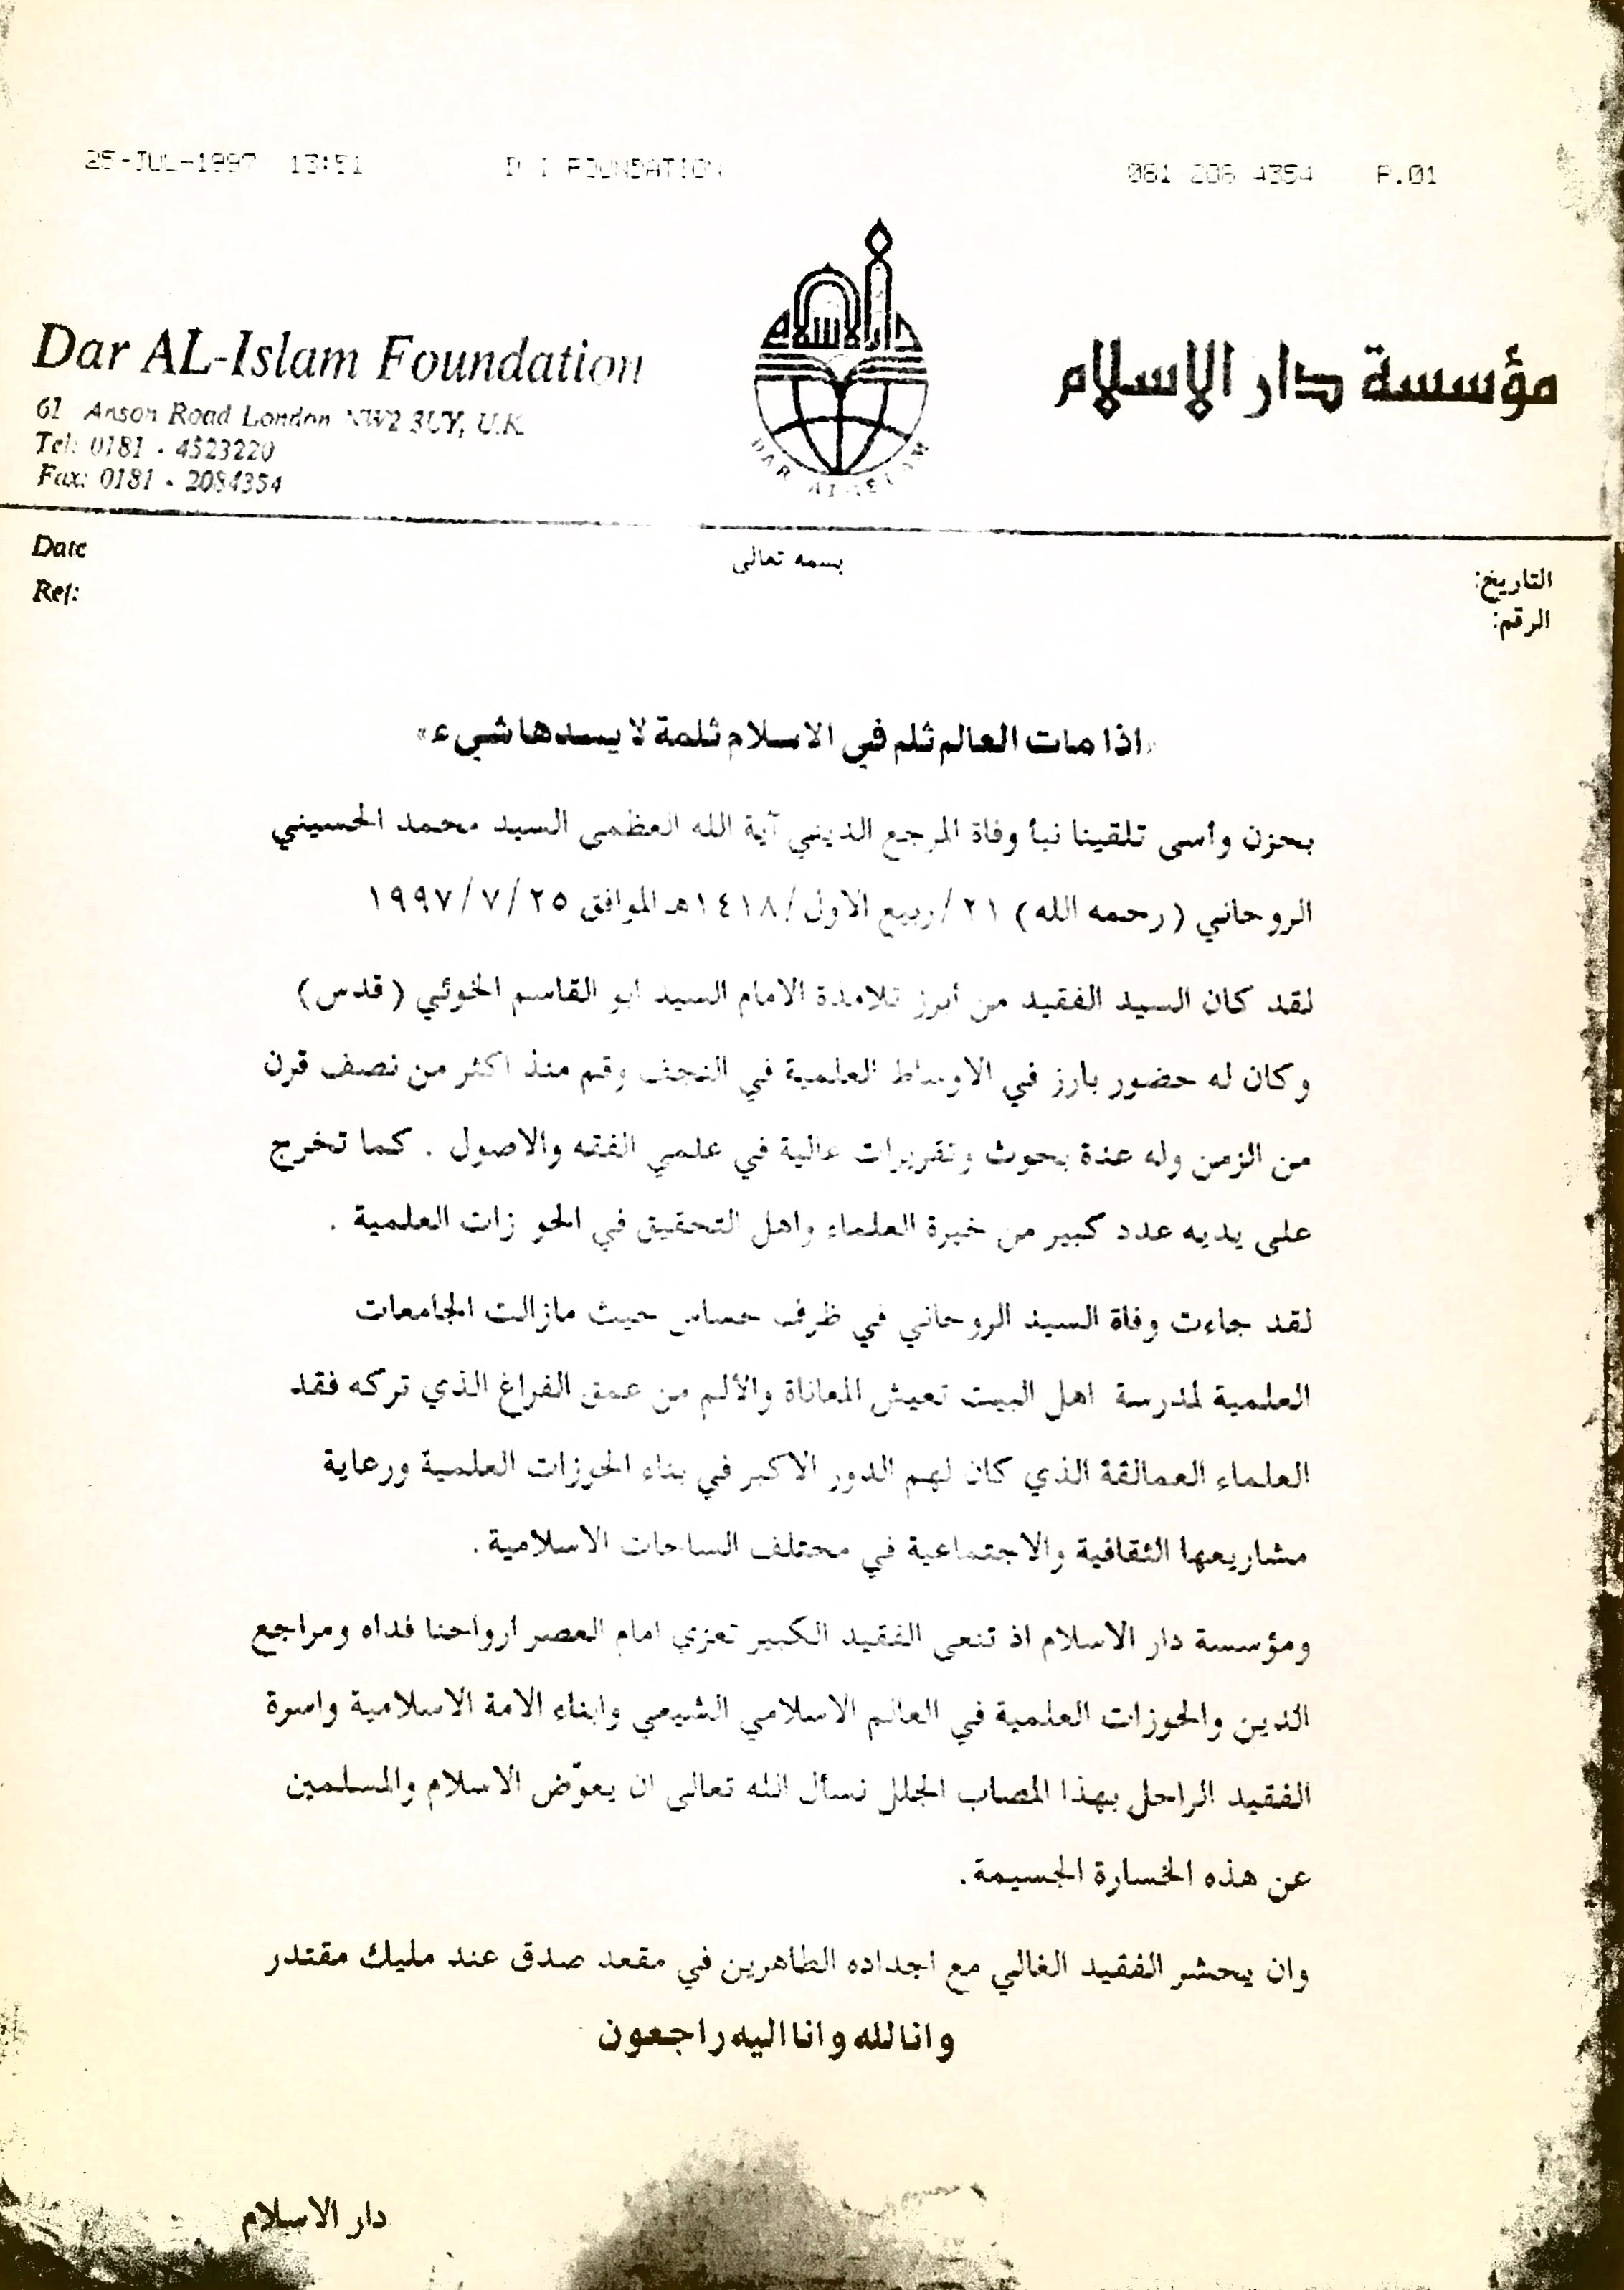 25-JUL-1997 13:51 D I FOUNDATION 081 208 4354 P.01
Dar AL-Islam Foundation
مؤسسة دار الاسلام
61 Anson Road London NW2 3UY, U.K.
Tel: 0181 - 4523220
Fax: 0181 - 2084354
دار الاسلام
DAR AL-ISLAM
Date
Ref:
بسمه تعالى
التاريخ:
الرقم:
«اذا مات العالم ثلم في الاسلام ثلمة لا يسدها شيء»
بحزن وأسى تلقينا نبأ وفاة المرجع الديني آية الله العظمى السيد محمد الحسيني
الروحاني (رحمه الله) ٢١/ربيع الاول/١٤١٨هـ الموافق ١٩٩٧/٧/٢٥
لقد كان السيد الفقيد من أبرز تلامذة الامام السيد ابو القاسم الخوئي (قدس)
وكان له حضور بارز في الاوساط العلمية في النجف وقم منذ اكثر من نصف قرن
من الزمن وله عدة بحوث وتقريرات عالية في علمي الفقه والاصول . كما تخرج
على يديه عدد كبير من خيرة العلماء واهل التحقيق في الحو زات العلمية .
لقد جاءت وفاة السيد الروحاني في ظرف حساس حيث مازالت الجامعات
العلمية لمدرسة اهل البيت تعيش المعاناة والألم من عمق الفراغ الذي تركه فقد
العلماء العمالقة الذي كان لهم الدور الاكبر في بناء الحوزات العلمية ورعاية
مشاريعها الثقافية والاجتماعية في مختلف الساحات الاسلامية .
ومؤسسة دار الاسلام اذ تنعى الفقيد الكبير تعزي امام العصر ارواحنا فداه ومراجع
الدين والحوزات العلمية في العالم الاسلامي الشيعي وابناء الامة الاسلامية واسرة
الفقيد الراحل بهذا المصاب الجلل نسأل الله تعالى ان يعوّض الاسلام والمسلمين
عن هذه الخسارة الجسيمة .
وان يحشر الفقيد الغالي مع اجداده الطاهرين في مقعد صدق عند مليك مقتدر
وانا لله وانا اليه راجعون
دار الاسلام